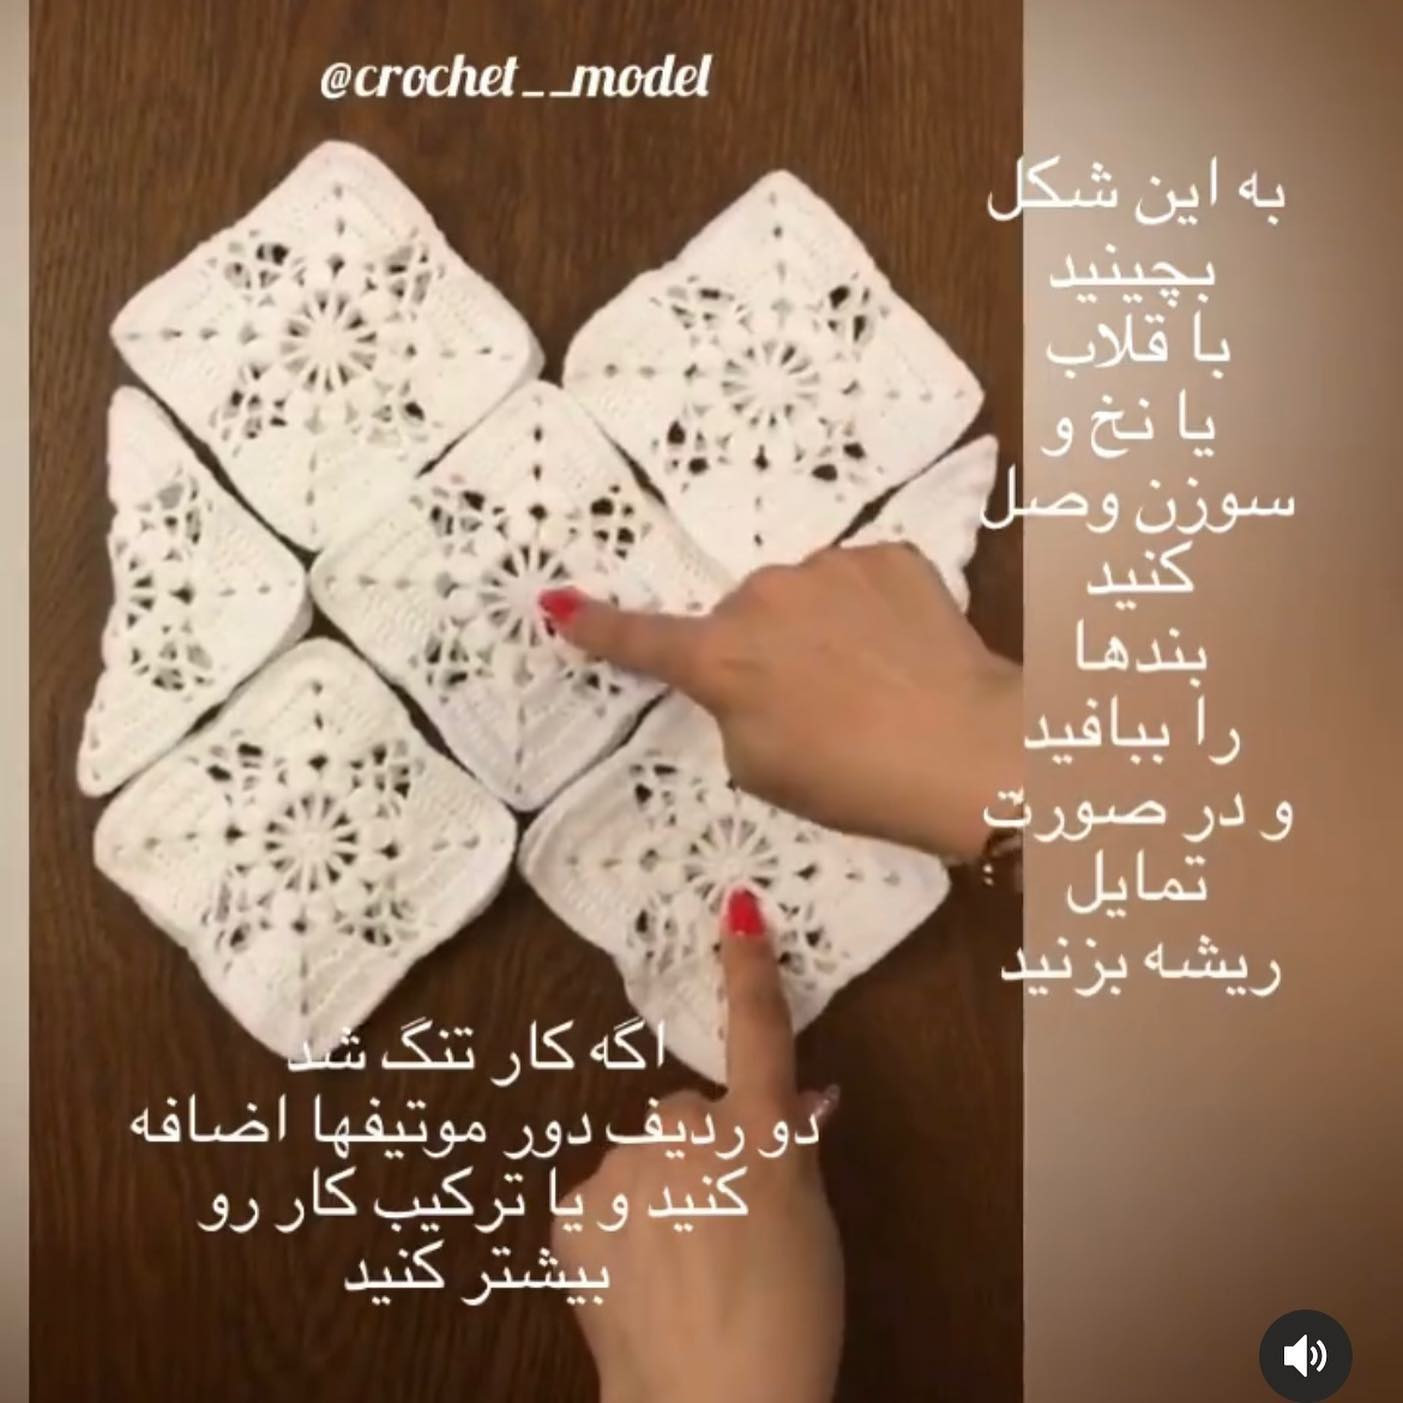 @crochet__model
به این شکل
بچینید
با قلاب
یا نخ و
سوزن وصل
کنید
بندها
را ببافید
و در صورت
تمایل
ریشه بزنید
اگه کار تنگ شد
دو ردیف دور موتیفها اضافه
کنید و یا ترکیب کار رو
بیشتر کنید